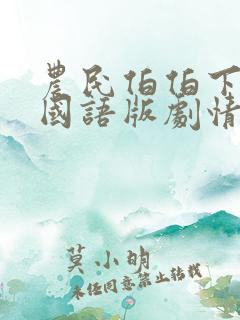 農民伯伯下
國語版劇情
莫小明
未經同意禁止轉載